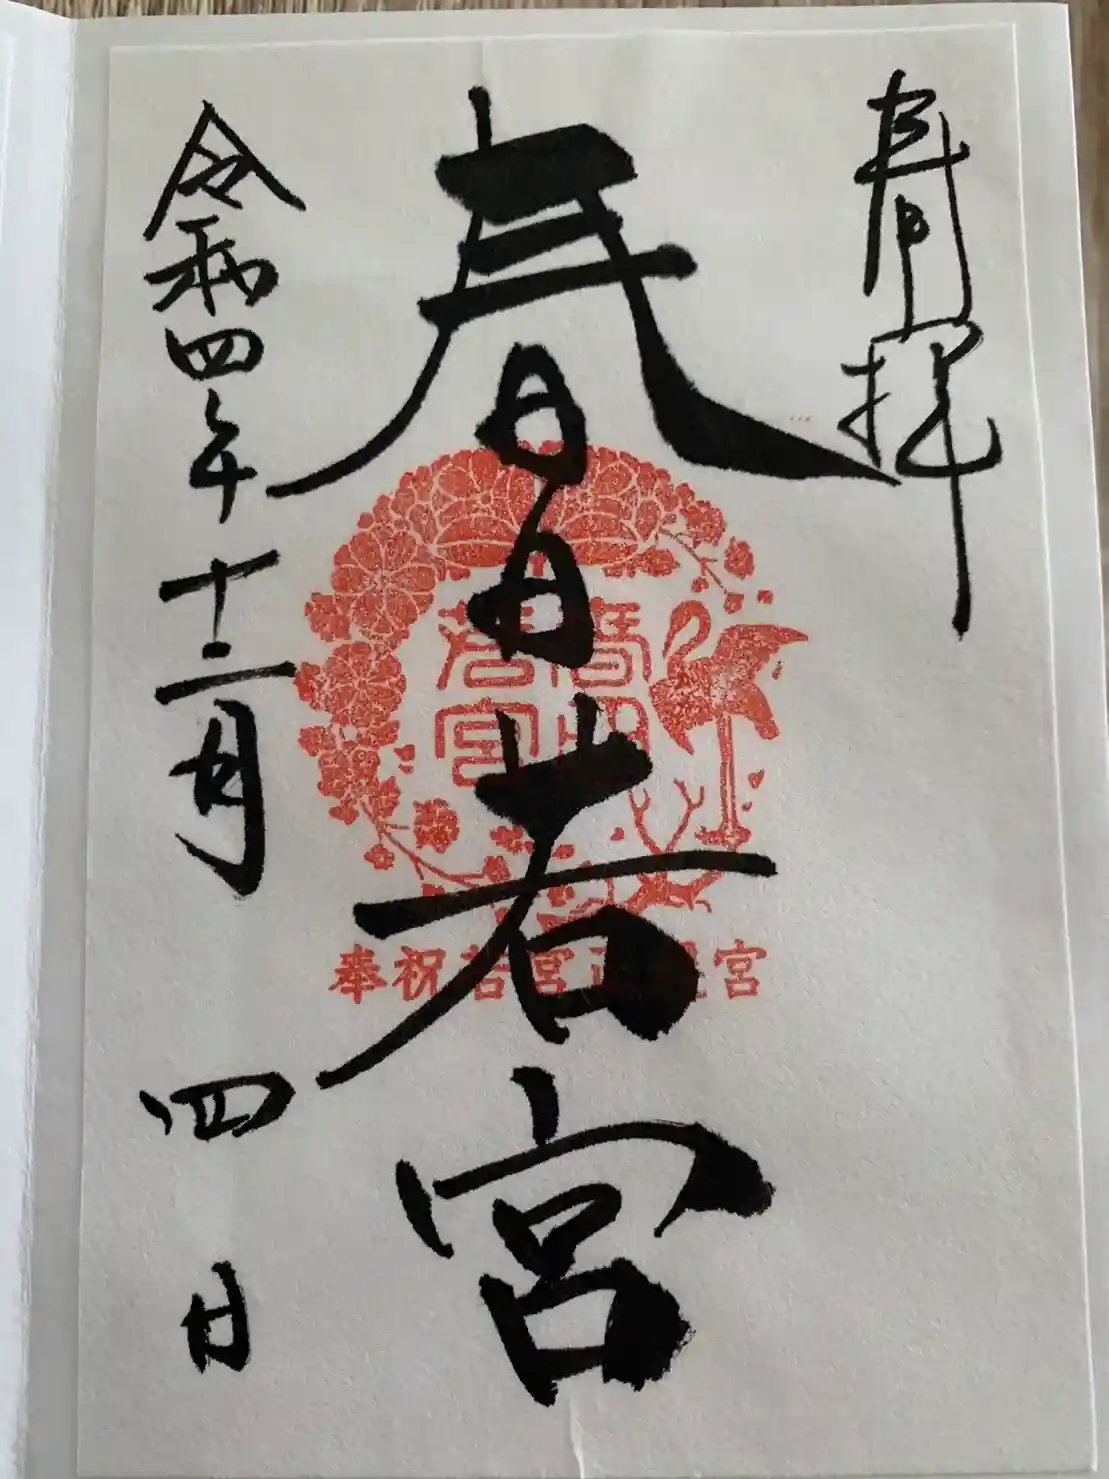 奉拝
春日若宮
春日
若宮
奉祝若宮正遷宮
令和四年十二月四日